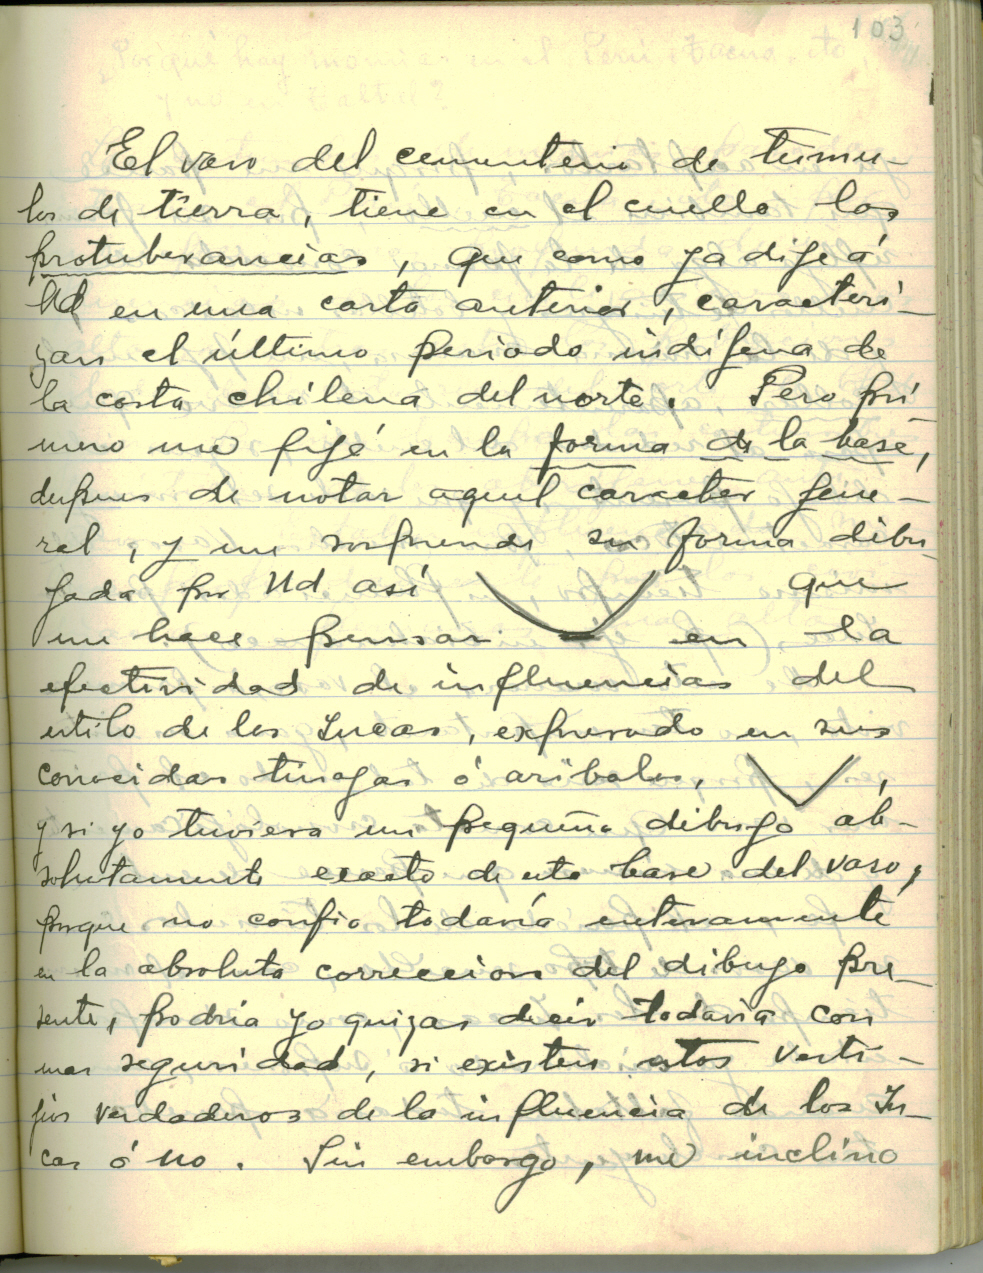 103
¿Porqué hay momias en el Perú, Tacna, etc
y no en Taltal?
El vaso del cementerio de túmu-
los de tierra, tiene en el cuello las
protuberancias, que como ya dije á
Ud en una carta anterior, caracteri-
zan el último periodo indígena de
la costa chilena del norte. Pero pri
mero me fijé en la forma de la base,
despues de notar aquel caracter gene-
ral, y me sorprende su forma dibu-
jada por Ud así que
me hace pensar en la
efectividad de influencias del
estilo de los Incas, expresado en sus
conocidas tinajas ó aribalos, ,
y si yo tuviera un pequeño dibujo ab-
solutamente exacto de esta base del vaso,
porque no confio todavía enteramente
en la absoluta correccion del dibujo pre-
sente, podría yo quizas decir todavía con
mas seguridad, si existen estos vesti-
jios verdaderos de la influencia de los In-
cas ó no. Sin embargo, me inclino